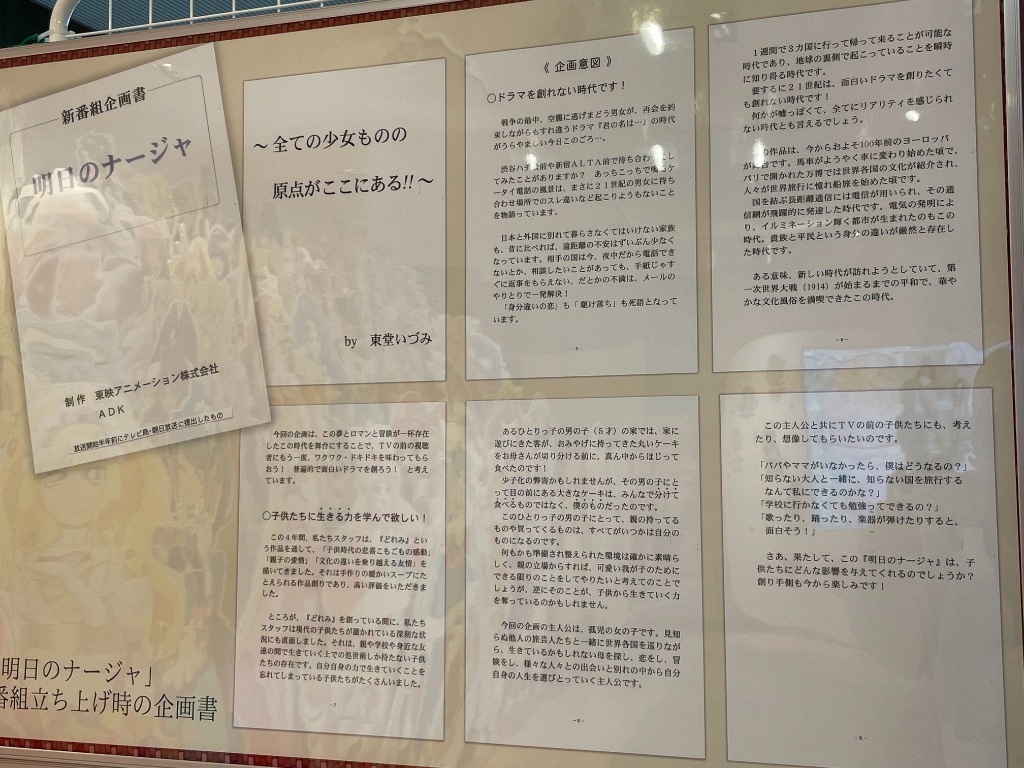 新番組企画書
明日のナージャ
制作 東映アニメーション株式会社
ADK
放送開始半年前にテレビ局・朝日放送に提出したもの
～ 全ての少女ものの
原点がここにある!! ～
by 東堂いづみ
《 企画意図 》
○ドラマを創れない時代です！
戦争の最中、空襲に逃げまどう男女が、再会を約
束しながらもすれ違うドラマ『君の名は…』の時代
がうらやましい今日このごろ…。
渋谷ハチ公前や新宿ＡＬＴＡ前で待ち合わせして
てみたことがありますか？ あっちこっちで鳴るケ
ータイ電話の風景は、まさに２１世紀の男女に待ち
合わせ場所でのスレ違いなど起こりようもないこと
を物語っています。
日本と外国に別れて暮らさなくてはいけない家族
も、昔に比べれば、遠距離の不安はずいぶん少なく
なっています。相手の国は今、夜中だから電話でき
ないとか、相談したいことがあっても、手紙じゃす
ぐに返事をもらえない、だとかの不満は、メールの
やりとりで一発解決！
「身分違いの恋」も「駆け落ち」も死語となって
います。
１週間で３カ国に行って帰って来ることが可能な
時代であり、地球の裏側で起こっていることを瞬時
に知り得る時代です。
要するに２１世紀は、面白いドラマを創りたくて
も創れない時代です！
何かが嘘っぽくて、全てにリアリティを感じられ
ない時代とも言えるでしょう。
この作品は、今からおよそ100年前のヨーロッパ
が舞台です。馬車がようやく車に変わり始めた頃で、
パリで開かれた万博では世界各国の文化が紹介され、
人々が世界旅行に憧れ船旅を始めた頃です。
国を結ぶ長距離通信には電信が用いられ、その通
信網が飛躍的に発達した時代です。電気の発明によ
り、イルミネーション輝く都市が生まれたのもこの
時代。貴族と平民という身分の違いが厳然と存在し
た時代です。
ある意味、新しい時代が訪れようとしていて、第
一次世界大戦（1914）が始まるまでの平和で、華や
かな文化風俗を満喫できたこの時代。
今回の企画は、この夢とロマンと冒険が一杯存在
したこの時代を舞台にすることで、ＴＶの前の視聴
者にもう一度、ワクワク・ドキドキを味わってもら
おう！ 普遍的で面白いドラマを創ろう！ と考え
ています。
○子供たちに生きる力を学んで欲しい！
この４年間、私たちスタッフは、『どれみ』とい
う作品を通して、「子供時代の悲喜こもごもの感動」
「親子の愛情」「文化の違いを乗り越える友情」を
描いてきました。それは手作りの暖かいスープにた
とえられる作品創りであり、高い評価をいただきま
した。
ところが、『どれみ』を創っている間に、私たち
スタッフは現代の子供たちが置かれている深刻な状
況にも直面しました。それは、親や学校や身近な友
達の間で生きていく上での処世術しか持たない子供
たちの存在です。自分自身の力で生きていくことを
忘れてしまっている子供たちがたくさんいました。
-7-
あるひとりっ子の男の子（５才）の家では、家に
遊びにきた客が、おみやげに持ってきた丸いケーキ
をお母さんが切り分ける前に、真ん中からほじって
食べたのです！
少子化の弊害かもしれませんが、その男の子にと
って目の前にある大きなケーキは、みんなで分けて
食べるものではなく、僕のものだったのです。
このひとりっ子の男の子にとって、親の持ってる
ものや買ってくるものは、すべてがいつかは自分の
ものになるのです。
何もかも準備され整えられた環境は確かに素晴ら
しく、親の立場からすれば、可愛い我が子のために
できる限りのことをしてやりたいと考えてのことで
しょうが、逆にそのことが、子供から生きていく力
を奪っているのかもしれません。
今回の企画の主人公は、孤児の女の子です。見知
らぬ他人の旅芸人たちと一緒に世界各国を巡りなが
ら、生きているかもしれない母を探し、恋をし、冒
険をし、様々な人々との出会いと別れの中から自分
自身の人生を選びとっていく主人公です。
この主人公と共にＴＶの前の子供たちにも、考え
たり、想像してもらいたいのです。
「パパやママがいなかったら、僕はどうなるの？」
「知らない大人と一緒に、知らない国を旅行する
なんて私にできるのかな？」
「学校に行かなくても勉強ってできるの？」
「歌ったり、踊ったり、楽器が弾けたりすると、
面白そう！」
さあ、果たして、この『明日のナージャ』は、子
供たちにどんな影響を与えてくれるのでしょうか？
創り手側も今から楽しみです！
明日のナージャ」
番組立ち上げ時の企画書